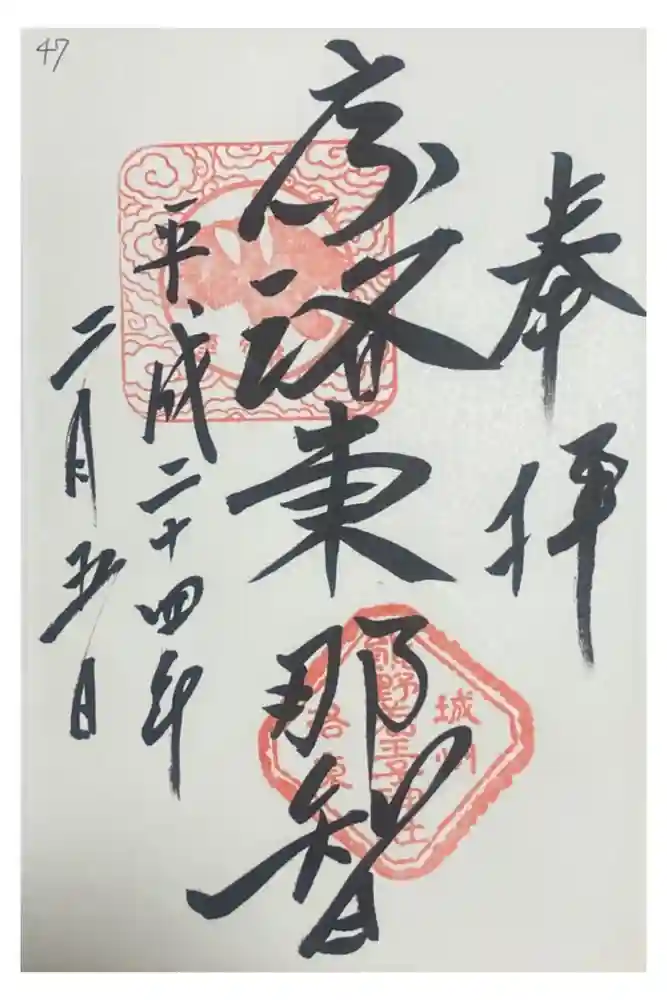 47
奉拝
京洛東那智
平成二十四年
二月五日
城州
熊野若王子神社
洛東